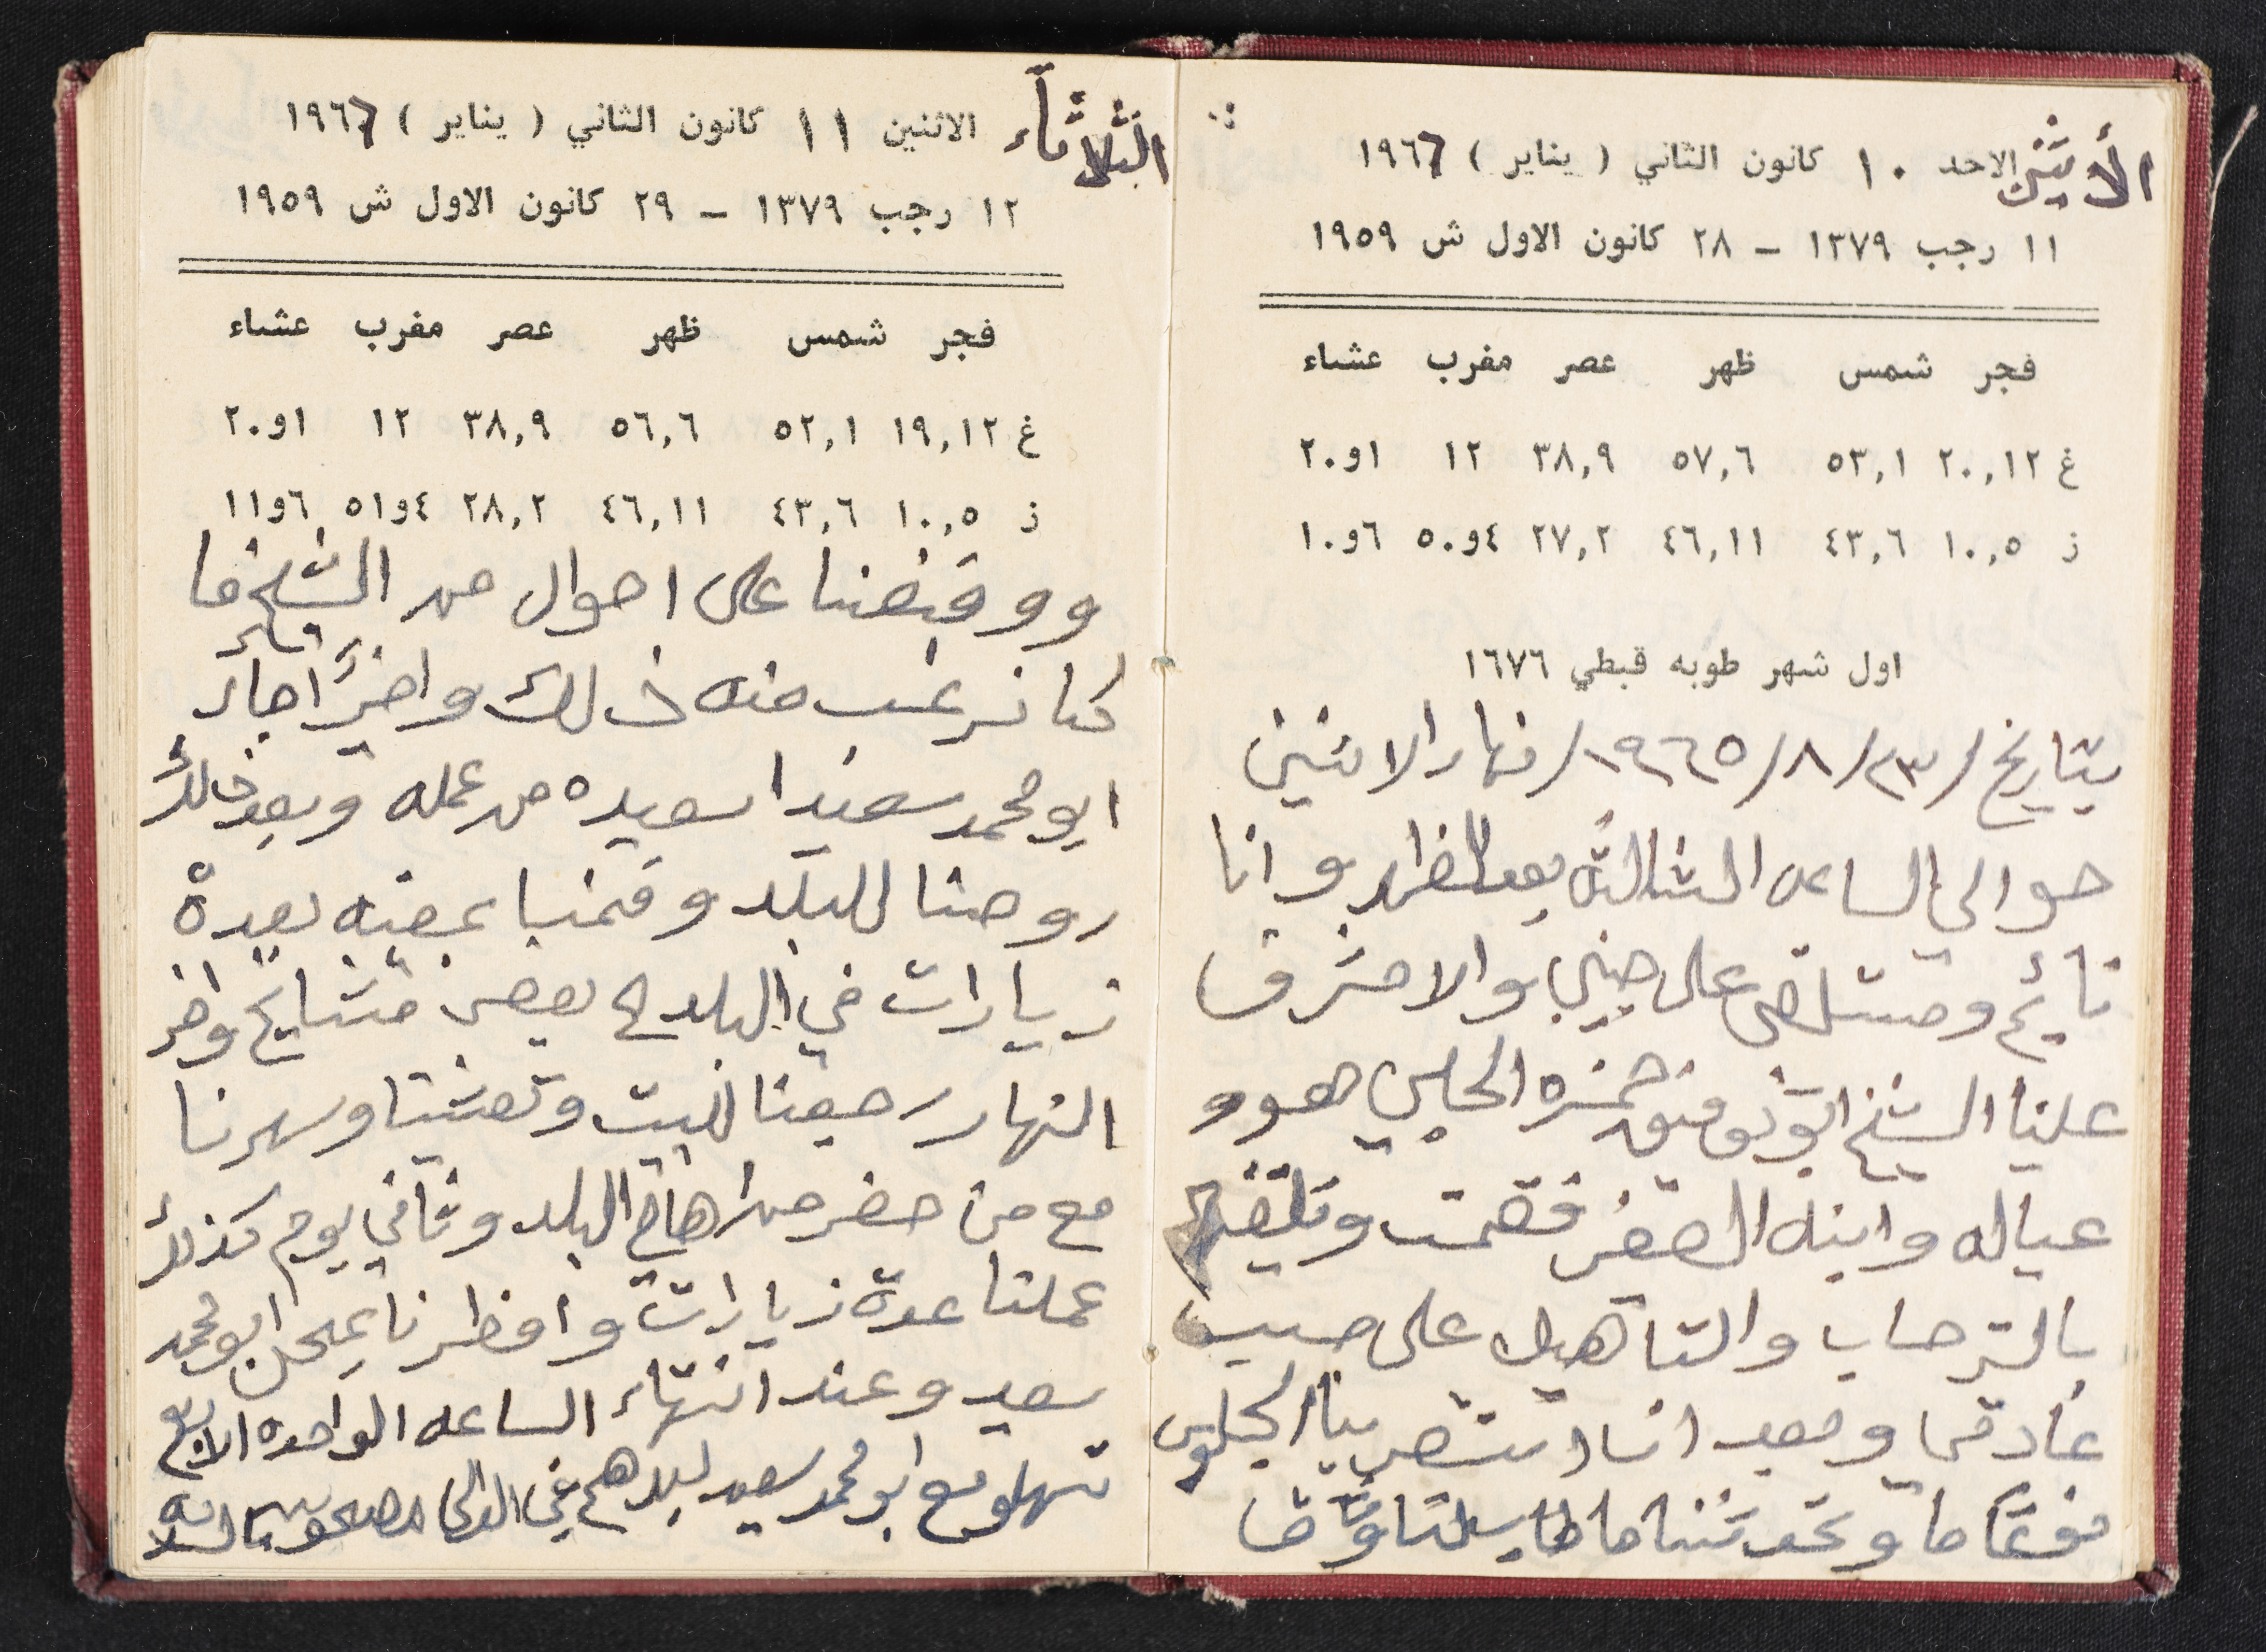 الأثنين الاحد ١٠ كانون الثاني ( يناير ) ١٩٦٦
١١ رجب ١٣٧٩ – ٢٨ كانون الاول ش ١٩٥٩
فجر شمس ظهر عصر مغرب عشاء
غ ٢٠,١٢ ٥٣,١ ٥٧,٦ ٣٨,٩ ١٢ ١و٢٠
ز ١٠,٥ ٤٣,٦ ٤٦,١١ ٢٧,٢ ٤و٥٠ ٦و١٠
اول شهر طوبه قبطي ١٦٧٦
بتاريخ /٢٣/٨/١٩٦٥/ نهار الاثنين
حوالي الساعه الثالثه بعد الظهر وانا
نايم ومستلقي على جنبي والا مشرف
علينا الشيخ ابو توفيق حمزه الحلبي هو و
عياله وابنه الصغير فقمت
بالترحاب والتاهيل على حسب
عادتي وبعد ان استقر بنا الجلوس
نوعًا ما وتحدثنا
الثلاثاء الاثنين ١١ كانون الثاني ( يناير ) ١٩٦٦
١٢ رجب ١٣٧٩ – ٢٩ كانون الاول ش ١٩٥٩
فجر شمس ظهر عصر مغرب عشاء
غ ١٩,١٢ ٥٢,١ ٥٦,٦ ٣٨,٩ ١٢ ١و٢٠
ز ١٠,٥ ٤٣,٦ ٤٦,١١ ٢٨,٢ ٤و٥١ ٦و١١
على احوال من الشيخ ما
كنا نرغب منه ذلك واخيرًا جاء
ابو محمد سعيد من عمله وبعد ذلك
روحنا للبلد وقمنا بمعيته بعدة
زيارات في البلد لبعض مشايخ واخر
النهار رجعنا للبيت وتعشينا وسهرنا
مع من حضر من اهالي البلد وثاني يوم كذلك
عملنا عدة زيارات وافطرنا بمحل ابو محمد
سعيد وعند انتهاء الساعه الواحده
مع ابو محمد سعيد